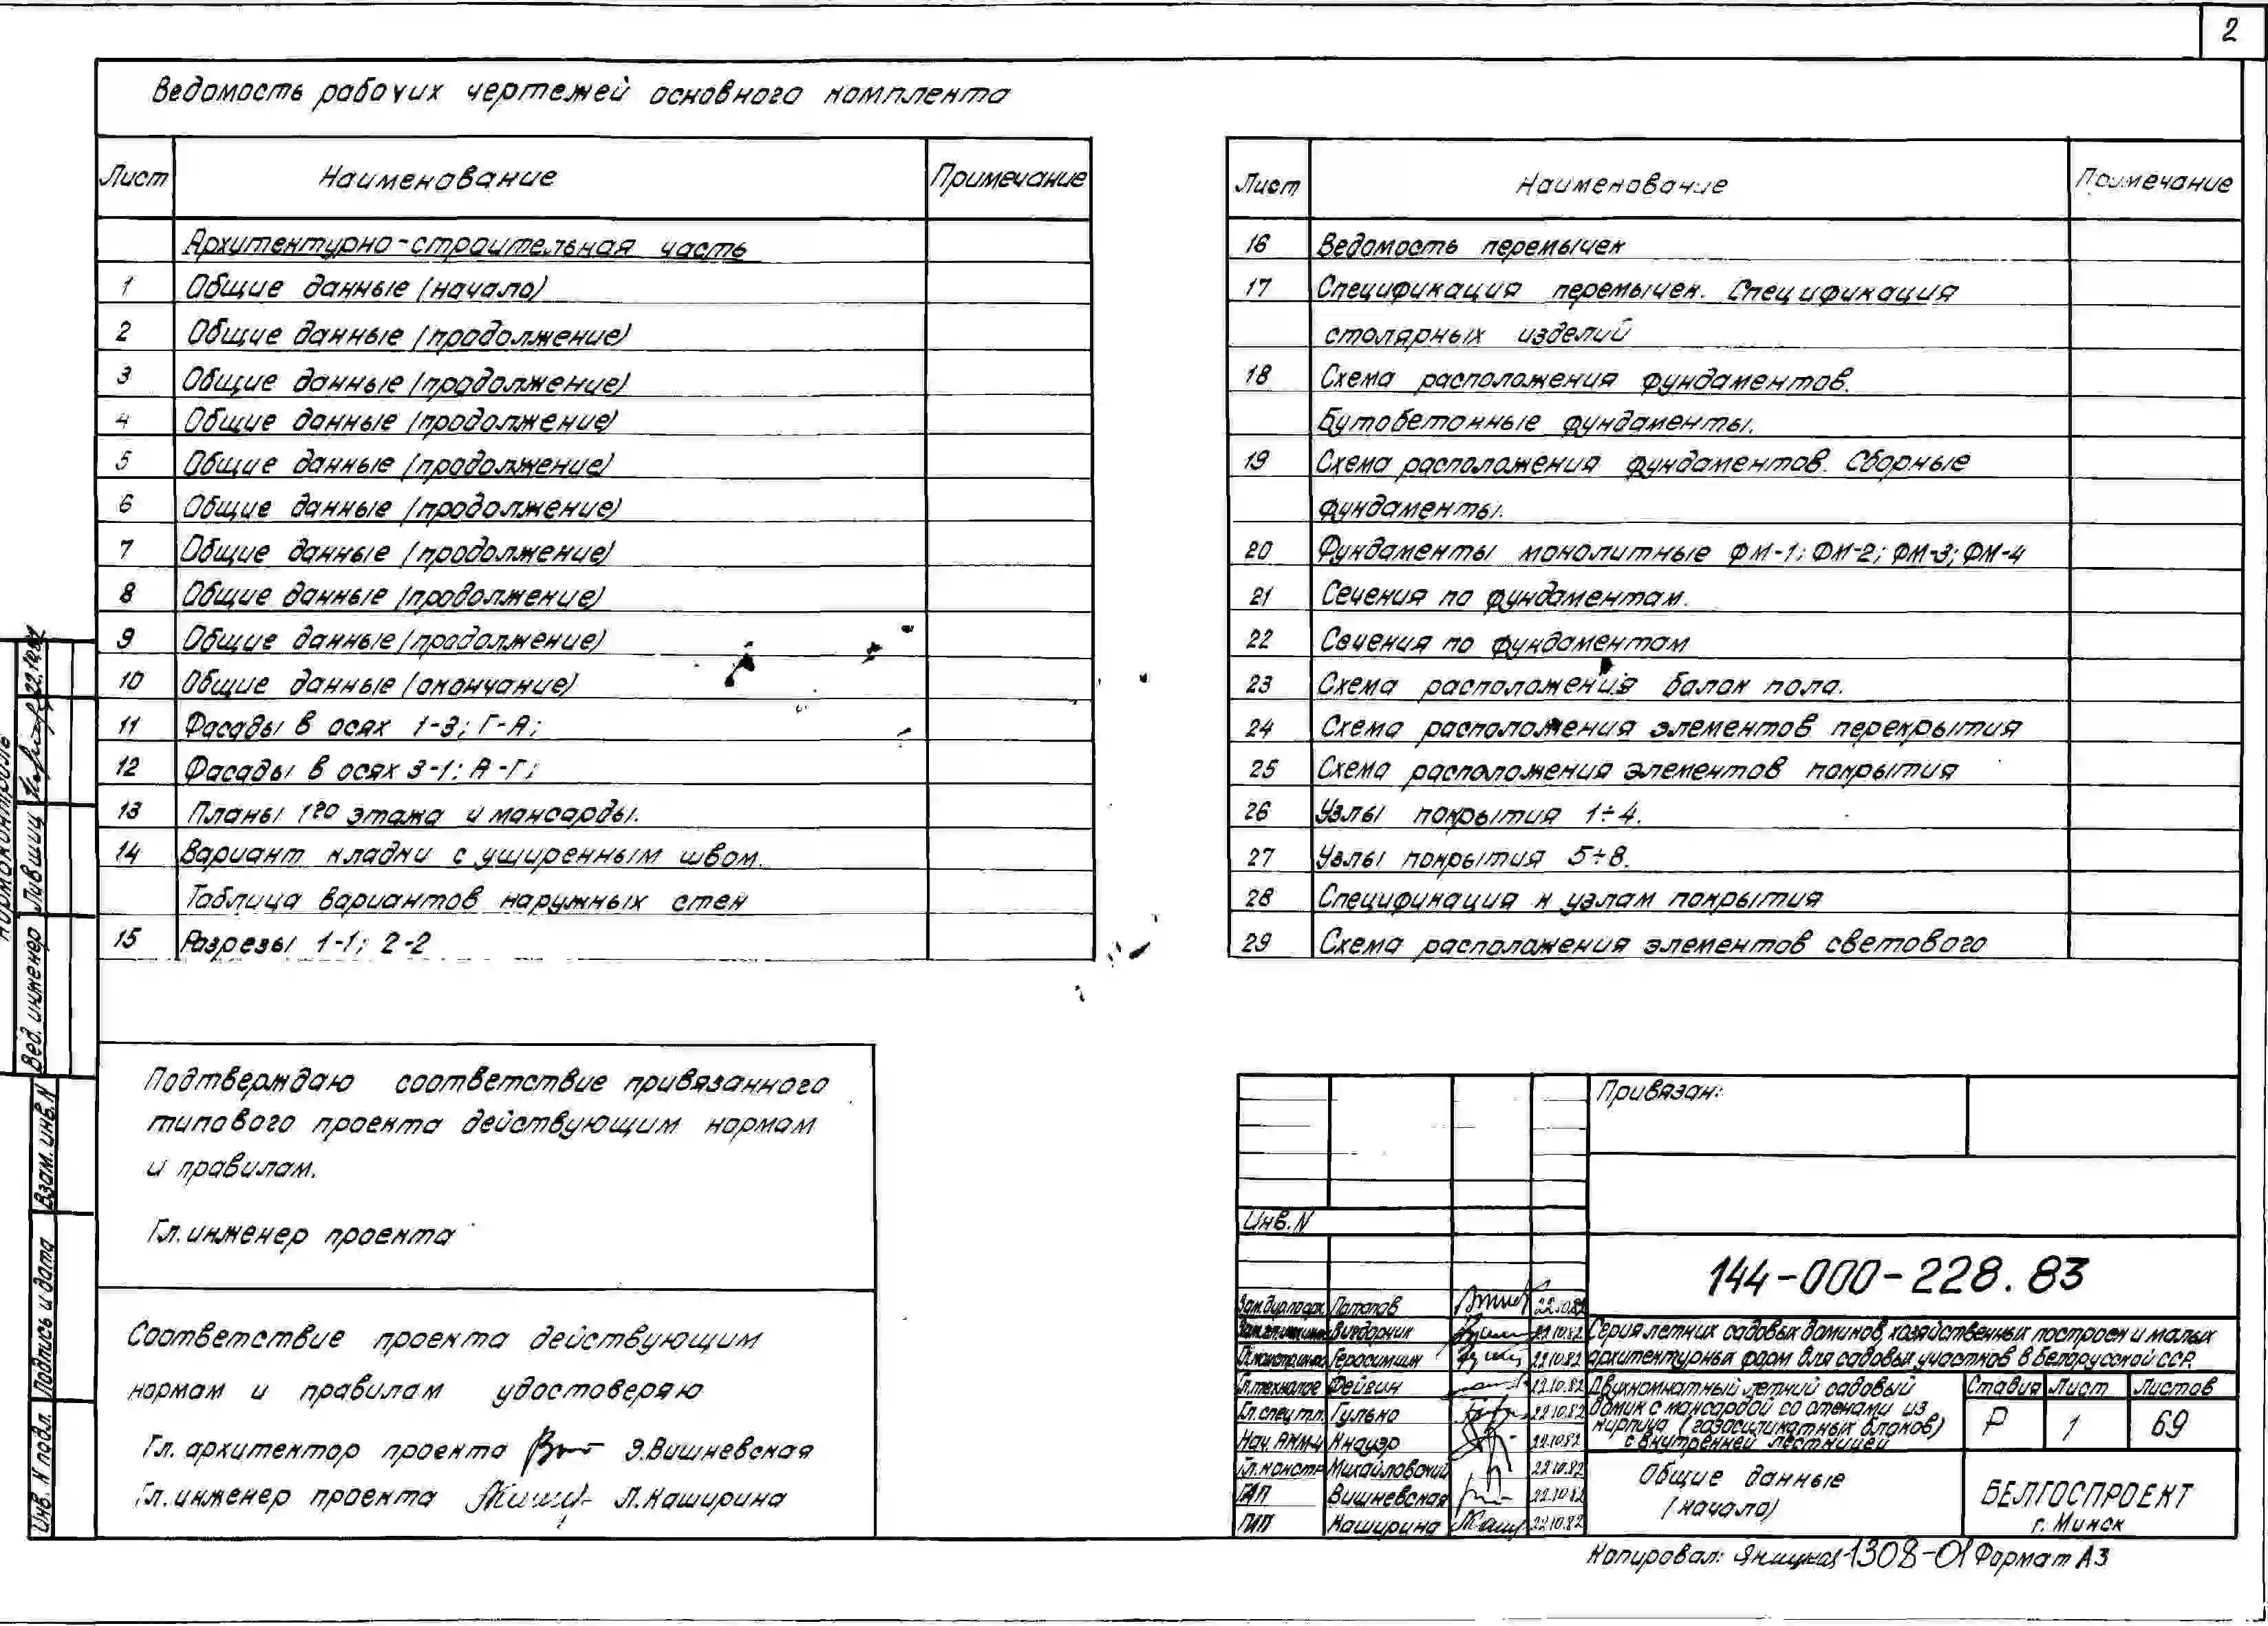 2
Ведомость рабочих чертежей основного комплекта
Лист Наименование Примечание
Архитектурно-строительная часть
1 Общие данные (начало)
2 Общие данные (продолжение)
3 Общие данные (продолжение)
4 Общие данные (продолжение)
5 Общие данные (продолжение)
6 Общие данные (продолжение)
7 Общие данные (продолжение)
8 Общие данные (продолжение)
9 Общие данные (продолжение)
10 Общие данные (окончание)
11 Фасады в осях 1-3; Г-А;
12 Фасады в осях 3-1; А-Г;
13 Планы 1го этажа и мансарды.
14 Вариант кладки с уширенным швом.
Таблица вариантов наружных стен
15 Разрезы 1-1; 2-2
Лист Наименование Примечание
16 Ведомость перемычек
17 Спецификация перемычек. Спецификация
столярных изделий
18 Схема расположения фундаментов.
Бутобетонные фундаменты.
19 Схема расположения фундаментов. Сборные
фундаменты.
20 Фундаменты монолитные ФМ-1; ФМ-2; ФМ-3; ФМ-4
21 Сечения по фундаментам.
22 Сечения по фундаментам
23 Схема расположения балок пола.
24 Схема расположения элементов перекрытия
25 Схема расположения элементов покрытия
26 Узлы покрытия 1÷4.
27 Узлы покрытия 5÷8.
28 Спецификация к узлам покрытия
29 Схема расположения элементов светового
Подтверждаю соответствие привязанного
типового проекта действующим нормам
и правилам.
Гл. инженер проекта
Соответствие проекта действующим
нормам и правилам удостоверяю
Гл. архитектор проекта Э.Вишневская
Гл. инженер проекта Л.Каширина
Нормоконтроль
Вед. инженер Лившиц
Взам. инв. N
Подпись и дата
Инв. N подл.
Привязан:
Инв. N
144-000-228.83
Потапов 22.10.82
Вигдорчик 22.10.82
Герасимчик 22.10.82
Гл.технолог Фейгин 22.10.82
Гл.спец т.п. Гулько 22.10.82
Нач. АКМ-4 Кнауэр 22.10.82
Гл.констр Михайловский 22.10.82
ГАП Вишневская 22.10.82
ГИП Каширина 22.10.82
Серия летних садовых домиков, хозяйственных построек и малых
архитектурных форм для садовых участков в Белорусской ССР.
Двухкомнатный летний садовый
домик с мансардой со стенами из
кирпича (газосиликатных блоков)
с внутренней лестницей
Стадия Лист Листов
Р 1 69
Общие данные
(начало)
БЕЛГОСПРОЕКТ
г. Минск
Копировал: 1308-01 Формат А3